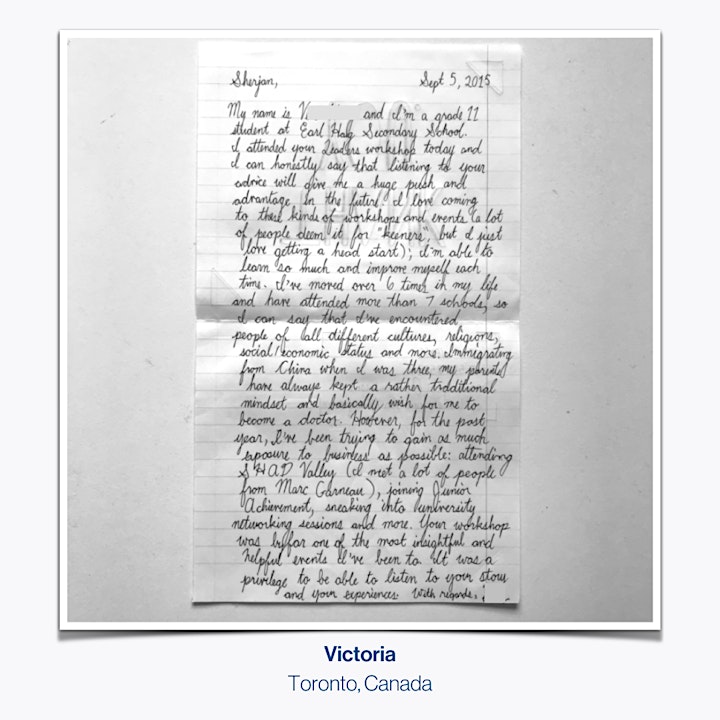 Sherjan, Sept 5, 2015
My name is V and I'm a grade 11
student at Earl Haig Secondary School.
I attended your Leaders workshop today and
I can honestly say that listening to your
advice will give me a huge push and
advantage in the future. I love coming
to these kinds of workshops and events (a lot
of people deem it for "keeners", but I just
love getting a head start); I'm able to
learn so much and improve myself each
time. I've moved over 6 times in my life
and have attended more than 7 schools, so
I can say that I've encountered
people of all different cultures, religions,
social/economic status and more. Immigrating
from China when I was three, my parents
have always kept a rather traditional
mindset and basically wish for me to
become a doctor. However, for the past
year, I've been trying to gain as much
exposure to business as possible: attending
SHAD Valley (I met a lot of people
from Marc Garneau), joining Junior
Achievement, sneaking into university
networking sessions and more. Your workshop
was by far one of the most insightful and
helpful events I've been to. It was a
privilege to be able to listen to your story
and your experiences. With regards,
Victoria
Toronto, Canada